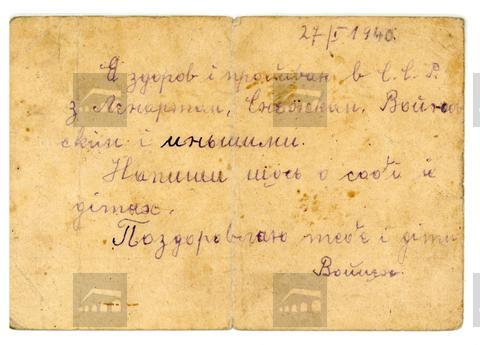 27/I 1940.
Я здоров і пробиваю в С. С. Р.
з Ленартом, Войнов
ским і иньшими.
Напиши щось о собі й
дітях.
Поздоровляю тебе і діти
Войцех.